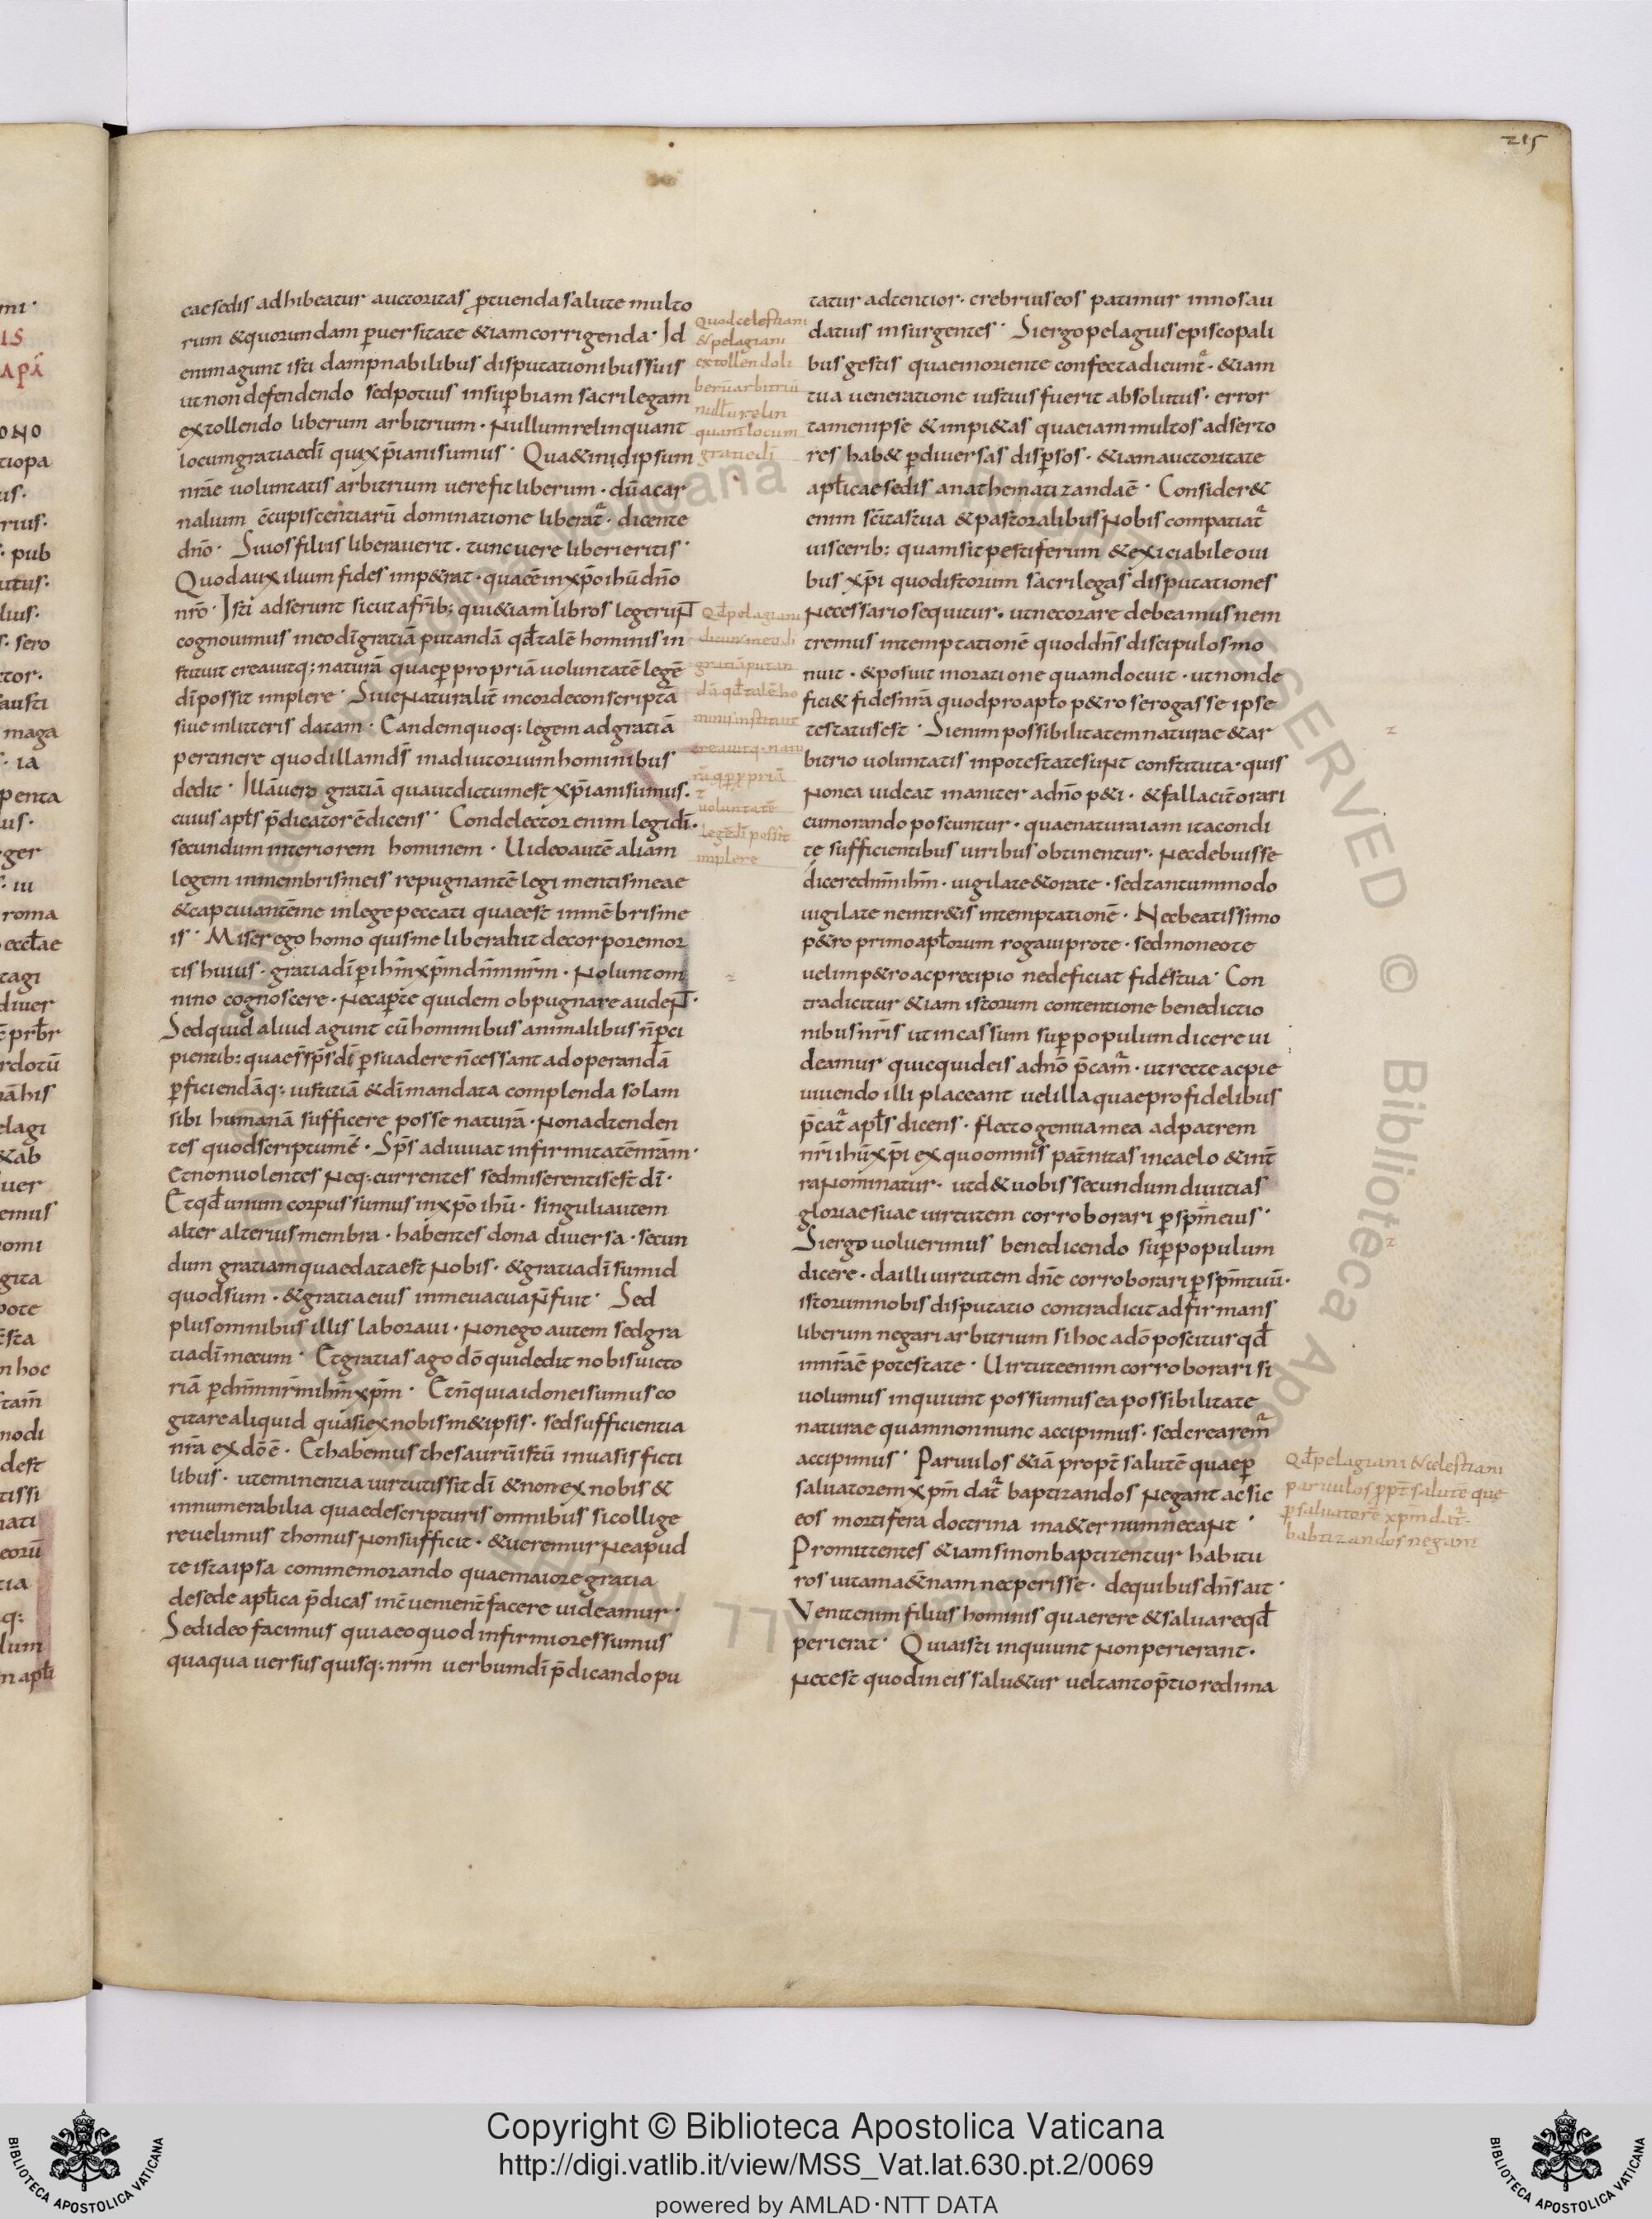 215
cae sedis adhibeatur auctoritas p̱tuenda salute multo
rum &quorundam p̱uersitate &iam corrigenda· Id
enim agunt isti dampnabilibus disputationibus suis
ut non defendendo sed potius insup̱biam sacrilegam
extollendo liberum arbitrium· Nullum relinquant
locum gratiae dī qui xp̄iani sumus· Qua &in idipsum
nr̄ae uoluntatis arbitrium uere fit liberum· dū a car
nalium c̄cupiscentiarū dominatione liberat᷑· dicente
dn̄o· Si uos filius liberauerit· tunc uere liberi eritis·
Quod auxilium fides imp&rat· quae ē in xp̄o ihū dn̄o
nr̄o· Isti adserunt sicut a fr̄ib; qui &iam libros legeruNT
cognouimus in eo dī gratiā putandā qđ talē hominis in
stituit creauitq; naturā quae p̱ propriā uoluntatē legē
dī possit implere· Siue Naturalit̄ in corde conscriptā
siue in litteris datam· Eandem quoq; legem ad gratiā
pertinere quod illam dś in adiutorium hominibus
dedit· Illā uero gratiā qua ut dictum est xp̄iani sumus·
cuius apłs p̄dicator ē dicens· Condelector enim legi dī·
secundum interiorem hominem· Uideo autē aliam
legem in membris meis repugnantē legi mentis meae
&captiuantē me in lege peccati quae est in mēbris me
is· Miser ego homo quis me liberabit de corpore mor
tis huius· gratia dī p̱ ihm̄ xp̄m dn̄m nr̄m· Nolunt om
nino cognoscere· Nec ap̱te quidem obpugnare audeNT·
Sed quid aliud agunt cū hominibus animalibus n̄ p̱ci
pientib; quae s̄ sp̄s dī p̱suadere n̄ cessant ad operandā
p̱ficiendāq; iustitiā &dī mandata complenda solam
sibi humanā sufficere posse naturā· Non adtenden
tes quod scriptum ē· Sp̄s adiuuat infirmitatē nr̄am·
Et non uolentes Neq; currentes sed miserentis est dī·
Et qđ unum corpus sumus in xp̄o ihū· singuli autem
alter alterius membra· habentes dona diuersa· secun
dum gratiam quae data est Nobis· &gratia dī sum id
quod sum· &gratia eius in me uacua N̄ fuit· Sed
plus omnibus illis laboraui· Non ego autem sed gra
tia dī mecum· Et gratias ago dō qui dedit nobis uicto
riā p̱ dn̄m nr̄m ihm̄ xp̄m· Et n̄ quia idonei sumus co
gitare aliquid quasi ex nobism&ipsis· sed sufficientia
nr̄a ex dō ē· Et habemus thesaurū istū in uasis ficti
libus· ut eminentia uirtutis sit dī &non ex nobis &
innumerabilia quae de scripturis omnibus si collige
re uelimus thomus Non sufficit· &ueremur Ne apud
te ista ipsa commemorando quae maiore gratia
de sede apłica p̄dicas inc̄uenient̄ facere uideamur·
Sed ideo facimus quia eo quod infirmiores sumus
quaqua uersus quisq; nr̄m uerbum dī p̄dicando pu
Quod celestiani
&pelagiani
extollendo li
berū arbitriū
nullū relin
quant locum
gratie dī
Qđ pelagiani
dicunt in eo dī
gratiā putan
dā qđ talē ho
minis instituit
creauitq· natu
rā q p̱ ppriā
uoluntatē
legē dī possit
implere
tatur adtentior· crebrius eos patimur in nos au
datius insurgentes· Si ergo pelagius episcopali
bus gestis quae in oriente confecta dicunt᷑· &iam
tua ueneratione iustius fuerit absolutus· error
tamen ipse &impi&as quae iam multos adserto
res hab& p̱ diuersas disp̱sos· &iam auctoritate
apłicae sedis anathematizanda ē· Consider&
enim sc̄itas tua &pastoralibus Nobis compatiat᷑
uiscerib; quam sit pestiferum &exiciabile oui
bus xp̄i quod istorum sacrilegas disputationes
Necessario sequitur· ut nec orare debeamus ne in
tremus in temptationē quod dn̄s discipulos mo
nuit· &posuit in oratione quam docuit· ut non de
fici& fides nr̄a quod pro apło p&ro se rogasse ipse
testatus est· Si enim possibilitatem naturae &ar
bitrio uoluntatis in potestate suNt constituta· quis
Non ea uideat inaniter a dn̄o p&i· &fallacit̄ orari
cum orando poscuntur· quae natura iam ita condi
te sufficientibus uiribus obtinentur· Nec debuisse
dicere dnm̄ ihm̄· uigilate &orate· sed tantummodo
uigilate ne intr&is in temptationē· Nec beatissimo
p&ro primo apłorum rogaui pro te· sed moneo te
uel imp&ro ac precipio ne deficiat fides tua· Con
tradicitur &iam istorum contentione benedictio
nibus nr̄is ut incassum sup̱ populum dicere ui
deamur quicquid eis a dn̄o p̄cam᷑· ut recte ac pie
uiuendo illi placeant uel illa quae pro fidelibus
p̄cat᷑ apłs dicens· Flecto genua mea ad patrem
nr̄i ihū xp̄i ex quo omnis pat̄nitas in caelo &in t̄
ra Nominatur· ut d& uobis secundum diuitias
gloriae suae uirtutem corroborari p̱ sp̄m eius·
Si ergo uoluerimus benedicendo sup̱ populum
dicere· da illi uirtutem dn̄e corroborari p̱ sp̄m tuū·
istorum nobis disputatio contradicit adfirmans
liberum negari arbitrium si hoc a dō poscitur qđ
in nr̄a ē potestate· Uirtute enim corroborari si
uolumus inquiunt possumus ea possibilitate
naturae quam non nunc accipimus· sed cum crearem᷑
accipimus· Paruulos &iā propt̄ salutē quae p̱
saluatorem xp̄m dat᷑ baptizandos Negant ac sic
eos mortifera doctrina in a&ernum necaNt·
Promittentes &iam si non baptizentur habitu
ros uitam a&ernam nec perisse· de quibus dn̄s ait·
Venit enim filius hominis quaerere &saluare qđ
perierat· Quia isti inquiunt Non perierant·
Nec est quod in eis salu&ur uel tanto p̄tio redima
Qđ pelagiani &celestiani
paruulos ppt̄ salutē que
p̱ saluatorē xp̄m dat᷑
babtizandos negant
Copyright © Biblioteca Apostolica Vaticana
http://digi.vatlib.it/view/MSS_Vat.lat.630.pt.2/0069
powered by AMLAD·NTT DATA
BIBLIOTECA APOSTOLICA VATICANA
BIBLIOTECA APOSTOLICA VATICANA